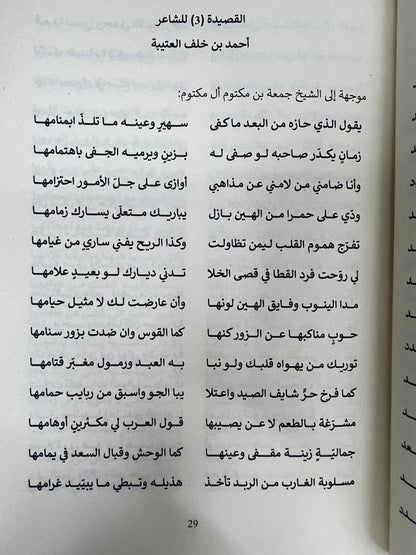 القصيدة (3) للشاعر
أحمد بن خلف العتيبة
موجهة إلى الشيخ جمعة بن مكتوم أل مكتوم:
يقول الذي حازه من البعد ما كفى سهيرٍ وعينه ما تلذّ ابمنامها
زمانٍ يكدّر صاحبه لو صفى له بزينٍ ويرميه الجفى باهتمامها
وأنا ضامني من لامني عن مذاهبي أوازى على جلّ الأمور احتزامها
ودّي على حمرا من الهين بازل يباريك متعلّي يسارك زمامها
تفرّج هموم القلب ليمن تظاولت وكذا الريح يفني ساريٍ من غيامها
لي روّحت فرد القطا في قصى الخلا تدني ديارك لو بعيدٍ علامها
مدا الينوب وفايق الهين لونها وأن عارضت لك لا مثيل حيامها
حوبٍ مناكبها عن الزور كنها كما القوس وان ضدت بزور سنامها
توريك من يهواه قلبك ولو نبا به العبد ورمول مغبّر قتامها
كما فرخ حرٍّ شايف الصيد واعتلا يبا الجو واسبق من ربايب حمامها
مشرّغة بالطعم لا عن يصيبها قول العرب لي مكثرينٍ أوهامها
جماليّةٍ زينة مقفى وعينها كما الوحش وقبال السعد في يمامها
مسلوبة الغارب من الربد تأخذ هذيله وتبطي ما يبيّيد غرامها
29